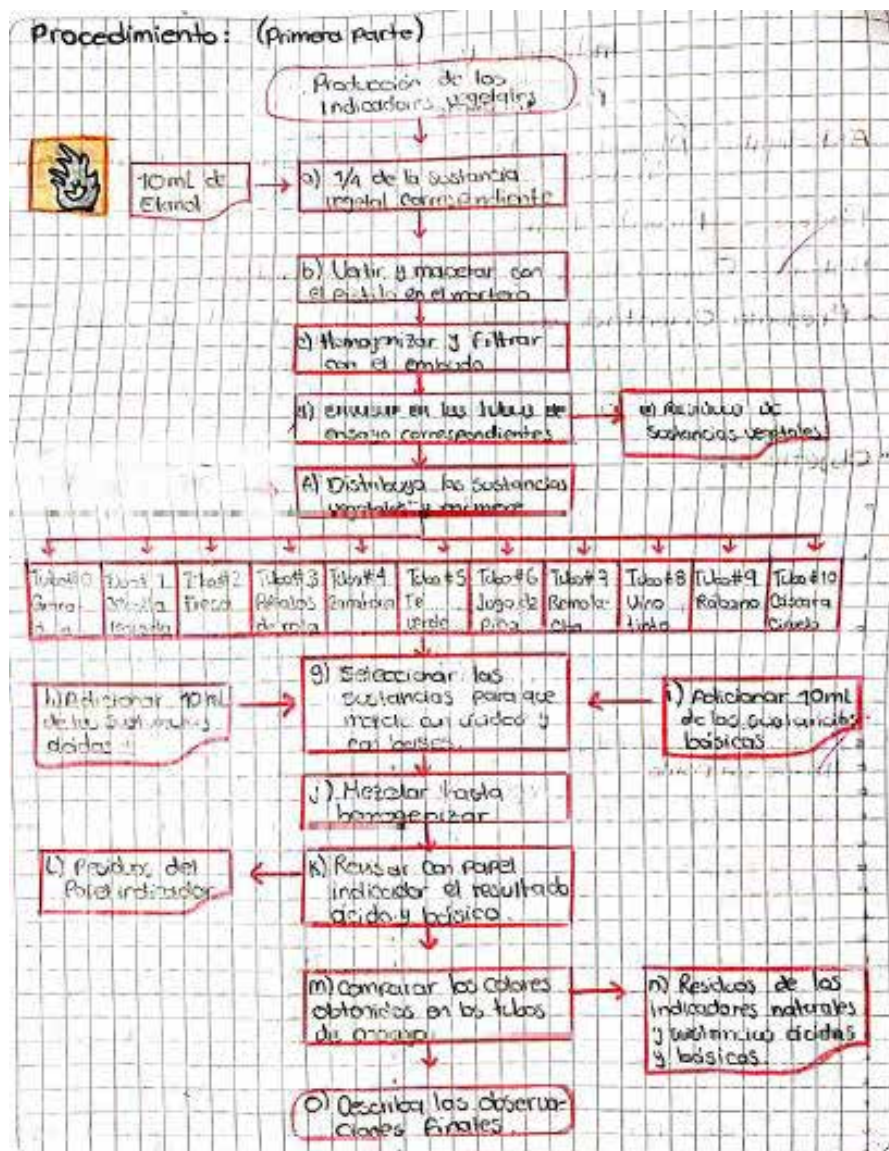 Procedimiento: (Primera Parte)
Producción de los
indicadores vegetales
10mL de
Etanol
a) 1/4 de la sustancia
vegetal correspondiente
b) Vertir y macerar con
el pistilo en el mortero
c) Homogenizar y filtrar
con el embudo
d) envasar en los tubos de
ensayo correspondientes
e) Residuo de
sustancias vegetales
Distribuya las sustancias
vegetales y
Tubo#0
Tubo#1
Tubo#2
Fresa
Tubo#3
Pétalos
de rosa
Tubo#4
Zanahoria
Tubo#5
Te
verde
Tubo#6
Jugo de
Piña
Tubo#7
Remola-
cha
Tubo#8
Vino
tinto
Tubo#9
Rábano
Tubo#10
Cáscara
Ciruela
h) Adicionar 10mL
de las sustancias
ácidas
g) Seleccionar las
sustancias para que
mezcle con ácidos y
con bases.
i) Adicionar 10mL
de las sustancias
básicas
j) Mezclar hasta
homogenizar
L) Residuos del
Papel indicador
K) Revisar con papel
indicador el resultado
ácido y básico.
m) Comparar los colores
obtenidos en los tubos
de ensayo
n) Residuos de los
indicadores naturales
y sustancias ácidas
y básicas.
O) Describa las observa-
ciones finales.